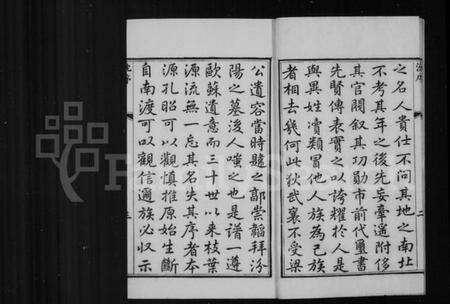 之名人貴仕不問其地之南北
不考其年之後先妄牽遠附侈
其官閥叙其功勛市前代璽書
先賢傳表實之以誇耀於人是
與異姓瀆類冒他人族為己族
者相去幾何此狄武襄不受梁
公遺容當時韙之郭崇韜拜汾
陽之墓後人嗤之也是譜一遵
歐蘇遺意而三十世以來枝葉
源流無一忘其名失其序者本
源孔昭可以觀慎推原始生斷
自南渡可以觀信邇族必収示